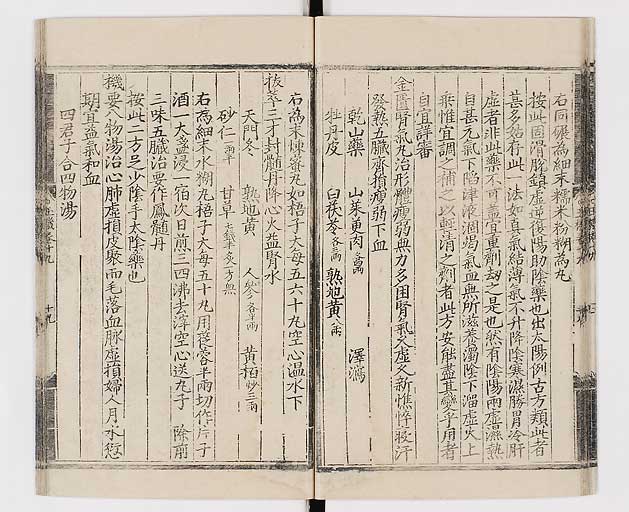 右同碾為細末糯米粉糊為丸
按此固滑脫鎮虛逆復陽助陰藥也出太陽例古方類此者
甚多姑存此一法如真氣結薄氣不升降陰寒濕勝胃冷肝
虛者非此藥不可蓋宜重劑劫之是也然有陰陽兩虛濕熱
自甚元氣下陷津液凋竭氣血無所滋養濁陰下溜虛火上
乘惟宜調之補之以輕清之劑者此方安能盡其變乎用者
自宜詳審
金匱腎氣丸治形體瘦弱無力多困腎氣久虛久新憔悴寢汗
發熱五臟齊損瘦弱下血
乾山藥 山茱萸肉 澤瀉
牡丹皮 白茯苓 熟地黃
右為末煉蜜丸如梧子大每五六十丸空心溫水下
拔萃三才封髓丹降心火益腎水
天門冬 熟地黃 人參各半兩 黃栢炒三兩
砂仁 甘草
右為細末水糊丸梧子大每五十丸用蓯蓉半兩切作片子
酒一大盞浸一宿次日煎三四沸去滓空心送丸子 除前
三味五臟治要作鳳髓丹
按此二方足少陰手太陰藥也
機要八物湯治心肺虛損皮聚而毛落血脉虛損婦人月水愆
期宜益氣和血
四君子合四物湯